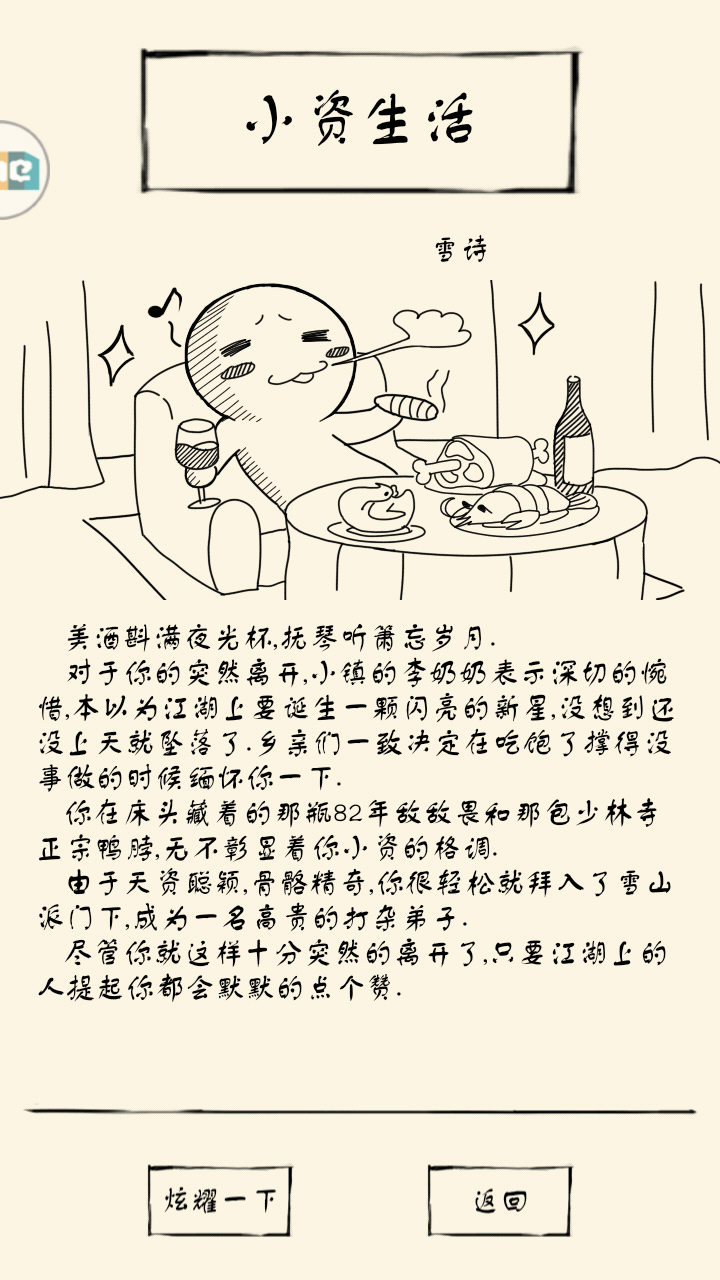 小资生活
雪诗
美酒斟满夜光杯,抚琴听箫忘岁月.
对于你的突然离开,小镇的李奶奶表示深切的惋
惜,本以为江湖上要诞生一颗闪亮的新星,没想到还
没上天就坠落了.乡亲们一致决定在吃饱了撑得没
事做的时候缅怀你一下.
你在床头藏着的那瓶82年敌敌畏和那包少林寺
正宗鸭脖,无不彰显着你小资的格调.
由于天资聪颖,骨骼精奇,你很轻松就拜入了雪山
派门下,成为一名高贵的打杂弟子.
尽管你就这样十分突然的离开了,只要江湖上的
人提起你都会默默的点个赞.
炫耀一下
返回